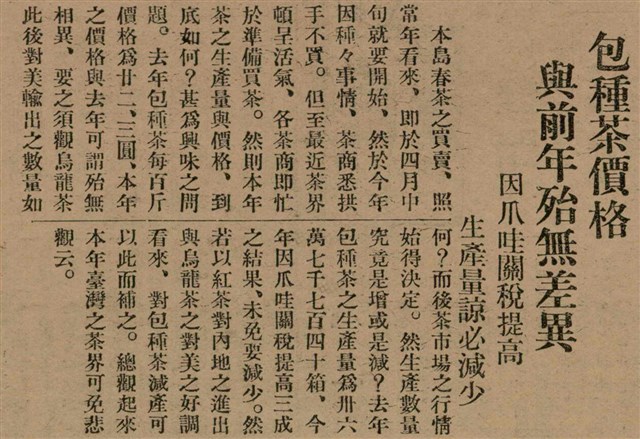 包種茶價格
與前年殆無差異
因爪哇關稅提高
生產量諒必減少
本島春茶之買賣、照
當年看來、即於四月中
旬就要開始、然於今年
因種々事情、茶商悉拱
手不買。但至最近茶界
頓呈活氣、各茶商即忙
於準備買茶。然則本年
茶之生產量與價格、到
底如何？甚爲興味之問
題。去年包種茶每百斤
價格爲廿二、三圓、本年
之價格與去年可謂殆無
相異、要之須觀烏龍茶
此後對美輸出之數量如
何？而後茶市場之行情
始得決定。然生產數量
究竟是增或是減？去年
包種茶之生產量爲卅六
萬七千七百四十箱、今
年因爪哇關稅提高三成
之結果、未免要減少。然
若以紅茶對內地之進出
與烏龍茶之對美之好調
看來、對包種茶減產可
以此而補之。總觀起來
本年臺灣之茶界可免悲
觀云。